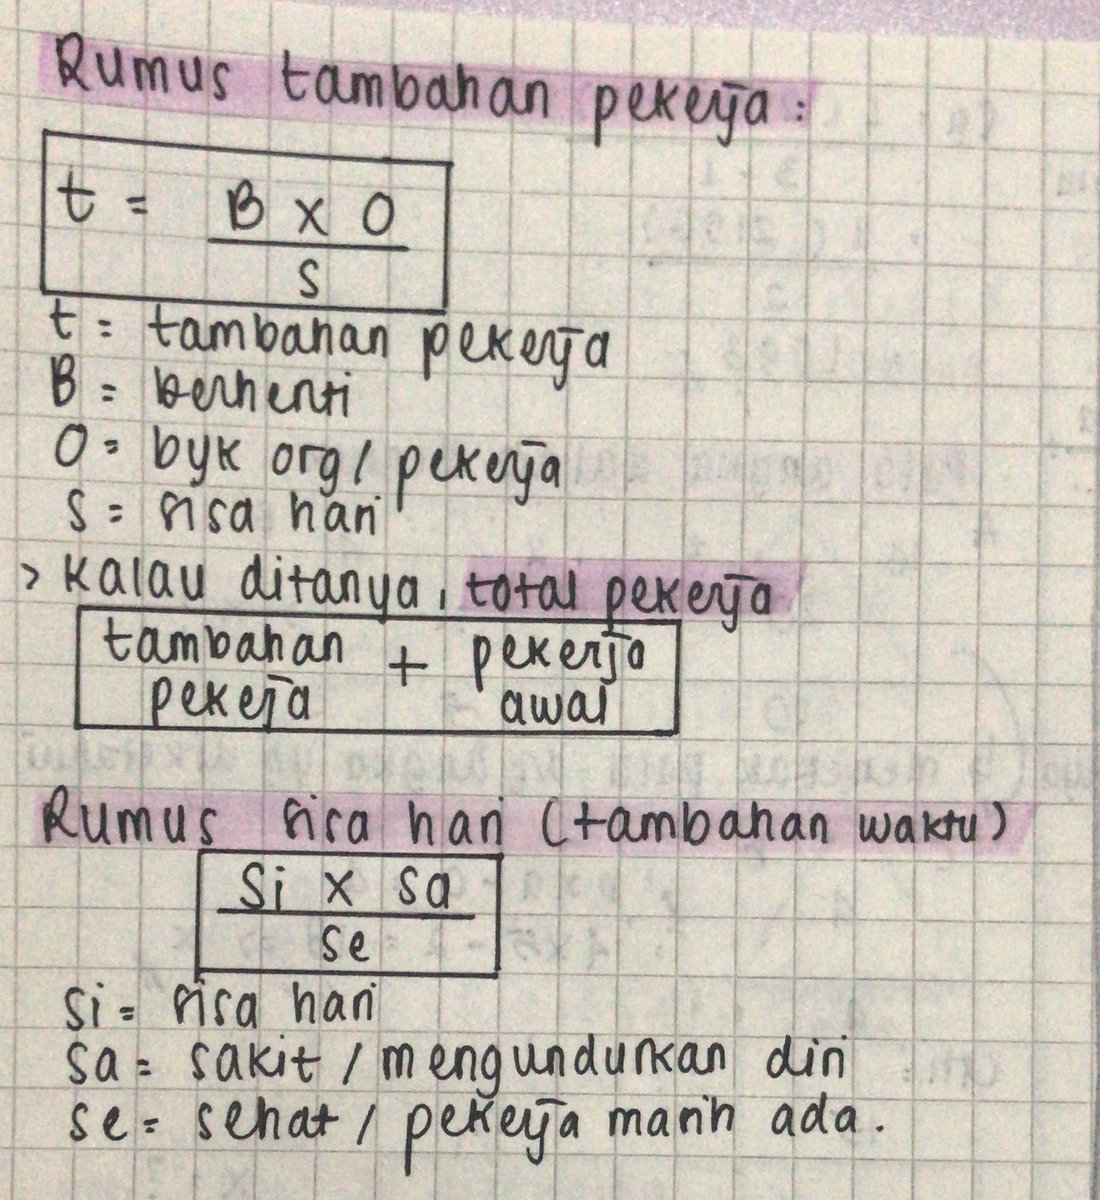 Rumus tambahan pekerja :
t = B x O
S
t = tambahan pekerja
B = berhenti
O = byk org / pekerja
S = sisa hari
> Kalau ditanya, total pekerja
tambahan + pekerja
pekeja awal
Rumus sisa hari (tambahan waktu)
Si x Sa
Se
Si = sisa hari
Sa = sakit / mengundurkan diri
Se = sehat / pekerja masih ada.